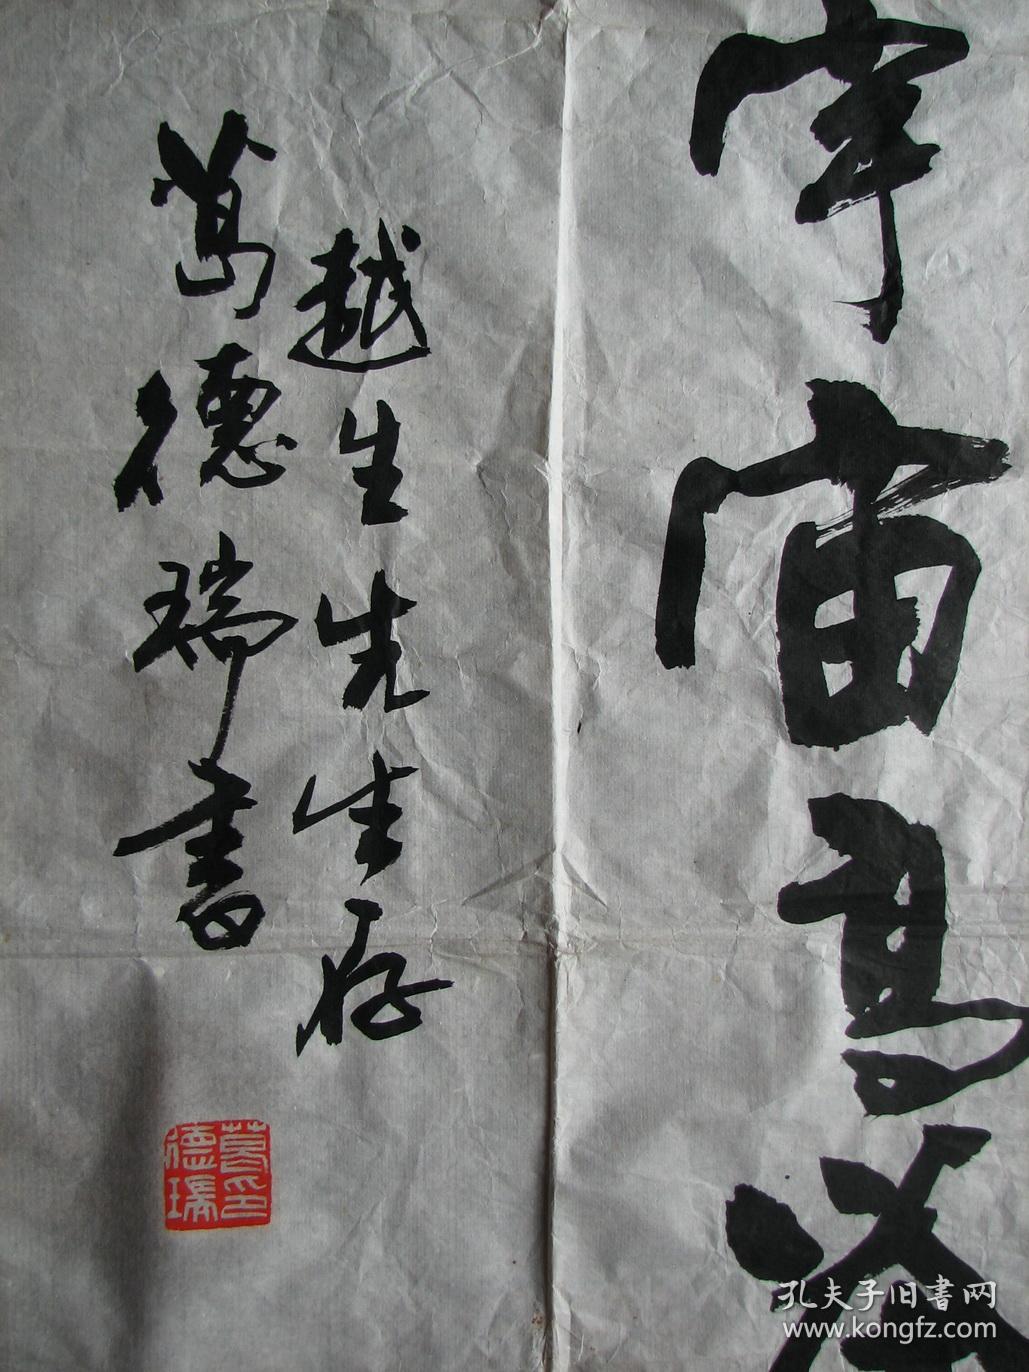 宇宙真
越生先生存
葛德瑞書
葛印
德瑞
孔夫子旧書网
www.kongfz.com